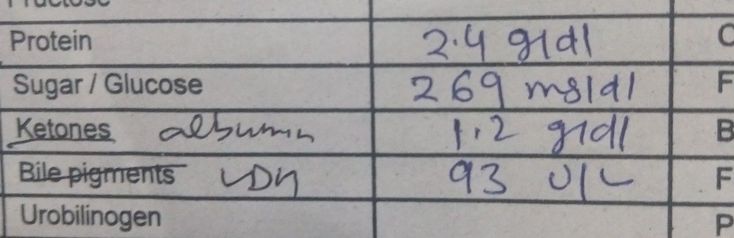 Fructose
Protein 2.4 g/dl C
Sugar / Glucose 269 mg/dl F
Ketones albumin 1.2 g/dl B
Bile pigments LDH 93 U/L F
Urobilinogen P